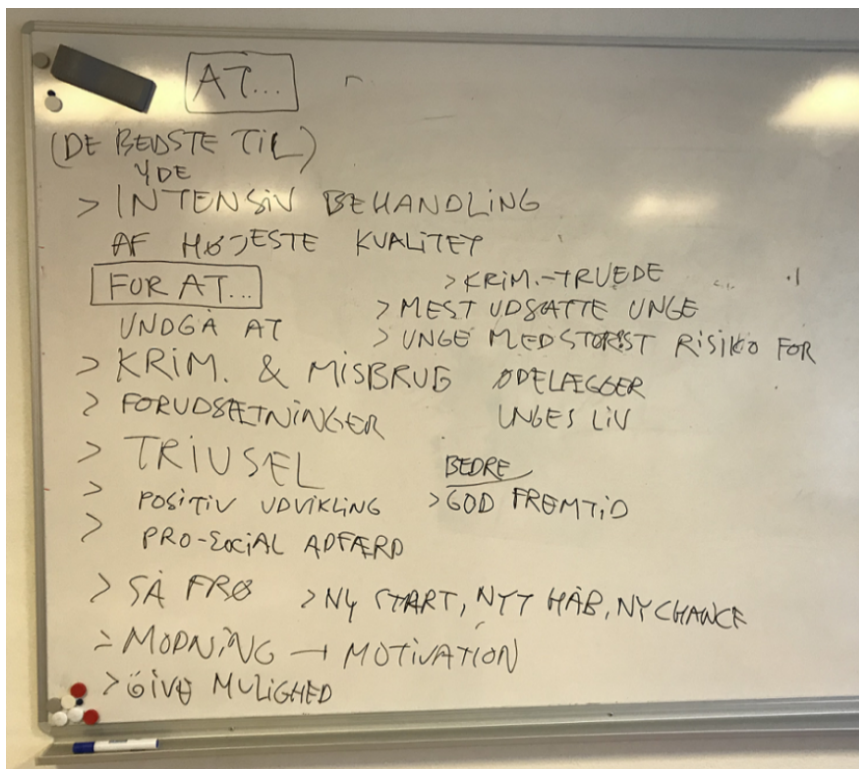 AT...
(DE BEDSTE TIL)
YDE
> INTENSIV BEHANDLING
AF HØJESTE KVALITET
FOR AT...
> KRIM.-TRUEDE
> MEST UDSATTE UNGE
UNDGÅ AT
> UNGE MED STØRST RISIKO FOR
> KRIM. & MISBRUG ØDELÆGGER
UNGES LIV
> FORUDSÆTNINGER
> TRIVSEL
BEDRE
> POSITIV UDVIKLING
> GOD FREMTID
> PRO-SOCIAL ADFÆRD
> SÅ FRØ > NY START, NYT HÅB, NY CHANCE
> MODNING → MOTIVATION
> GIVE MULIGHED